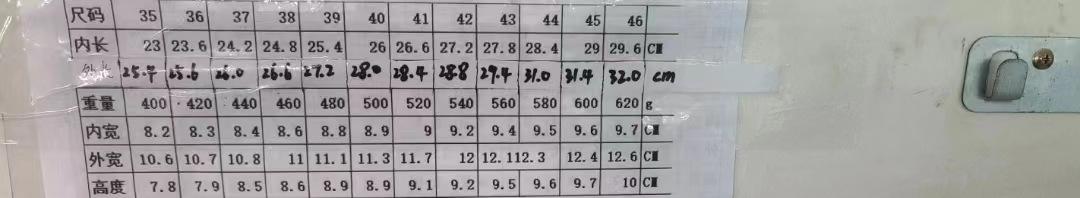 尺码 35 36 37 38 39 40 41 42 43 44 45 46
内长 23 23.6 24.2 24.8 25.4 26 26.6 27.2 27.8 28.4 29 29.6 CM
外长 25.4 25.6 26.0 26.6 27.2 28.0 28.4 28.8 29.4 31.0 31.4 32.0 cm
重量 400 420 440 460 480 500 520 540 560 580 600 620 g
内宽 8.2 8.3 8.4 8.6 8.8 8.9 9 9.2 9.4 9.5 9.6 9.7 CM
外宽 10.6 10.7 10.8 11 11.1 11.3 11.7 12 12.1 12.3 12.4 12.6 CM
高度 7.8 7.9 8.5 8.6 8.9 8.9 9.1 9.2 9.5 9.6 9.7 10 CM